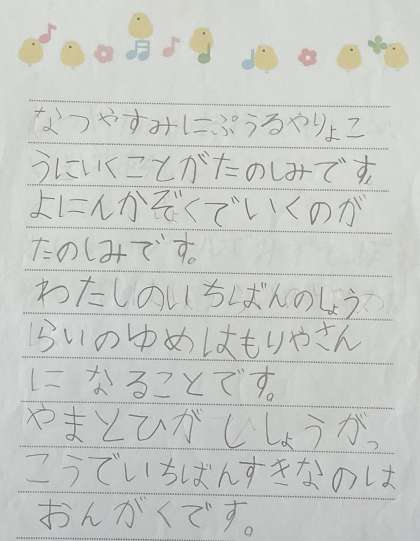 なつやすみにぷうるやりょこ
うにいくことがたのしみです。
よにんかぞくでいくのが
たのしみです。
わたしのいちばんのしょう
らいのゆめはもりやさん
に なることです。
やまとひがししょうがっ
こうでいちばんすきなのは
おんがくです。